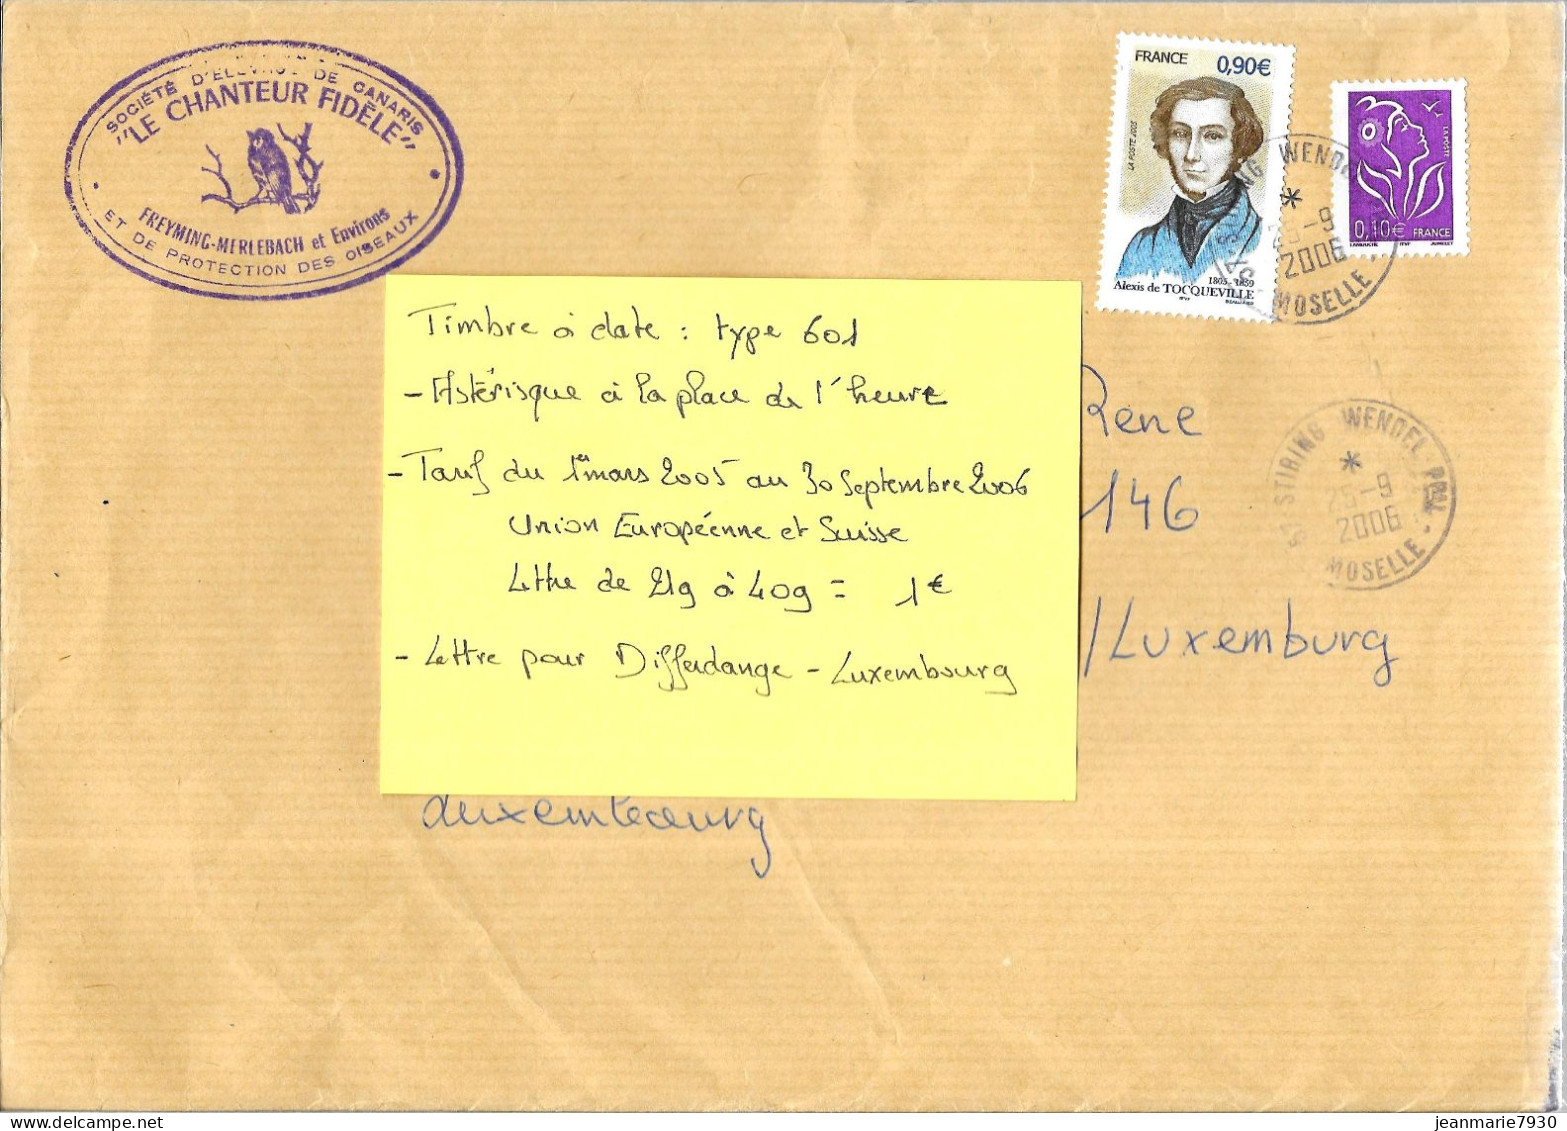 SOCIÉTÉ D'ELEVAGE DE CANARIS
"LE CHANTEUR FIDÈLE"
FREYMING-MERLEBACH et Environs
ET DE PROTECTION DES OISEAUX
FRANCE 0,90€
LA POSTE 2005
1805-1859
Alexis de TOCQUEVILLE
LA POSTE
0,10€ FRANCE
LAMOUCHE ITVF JUMELET
WENDEL
*
25-9
2006
MOSELLE
Timbre à date : type 601
- Astérisque à la place de l'heure
- Tarif du 1er mars 2005 au 30 Septembre 2006
Union Européenne et Suisse
Lettre de 21g à 40g = 1€
- Lettre pour Differdange - Luxembourg
René
146
/Luxemburg
Luxembourg
57 STIRING WENDEL PPAL
*
25-9
2006
MOSELLE
jeanmarie7930